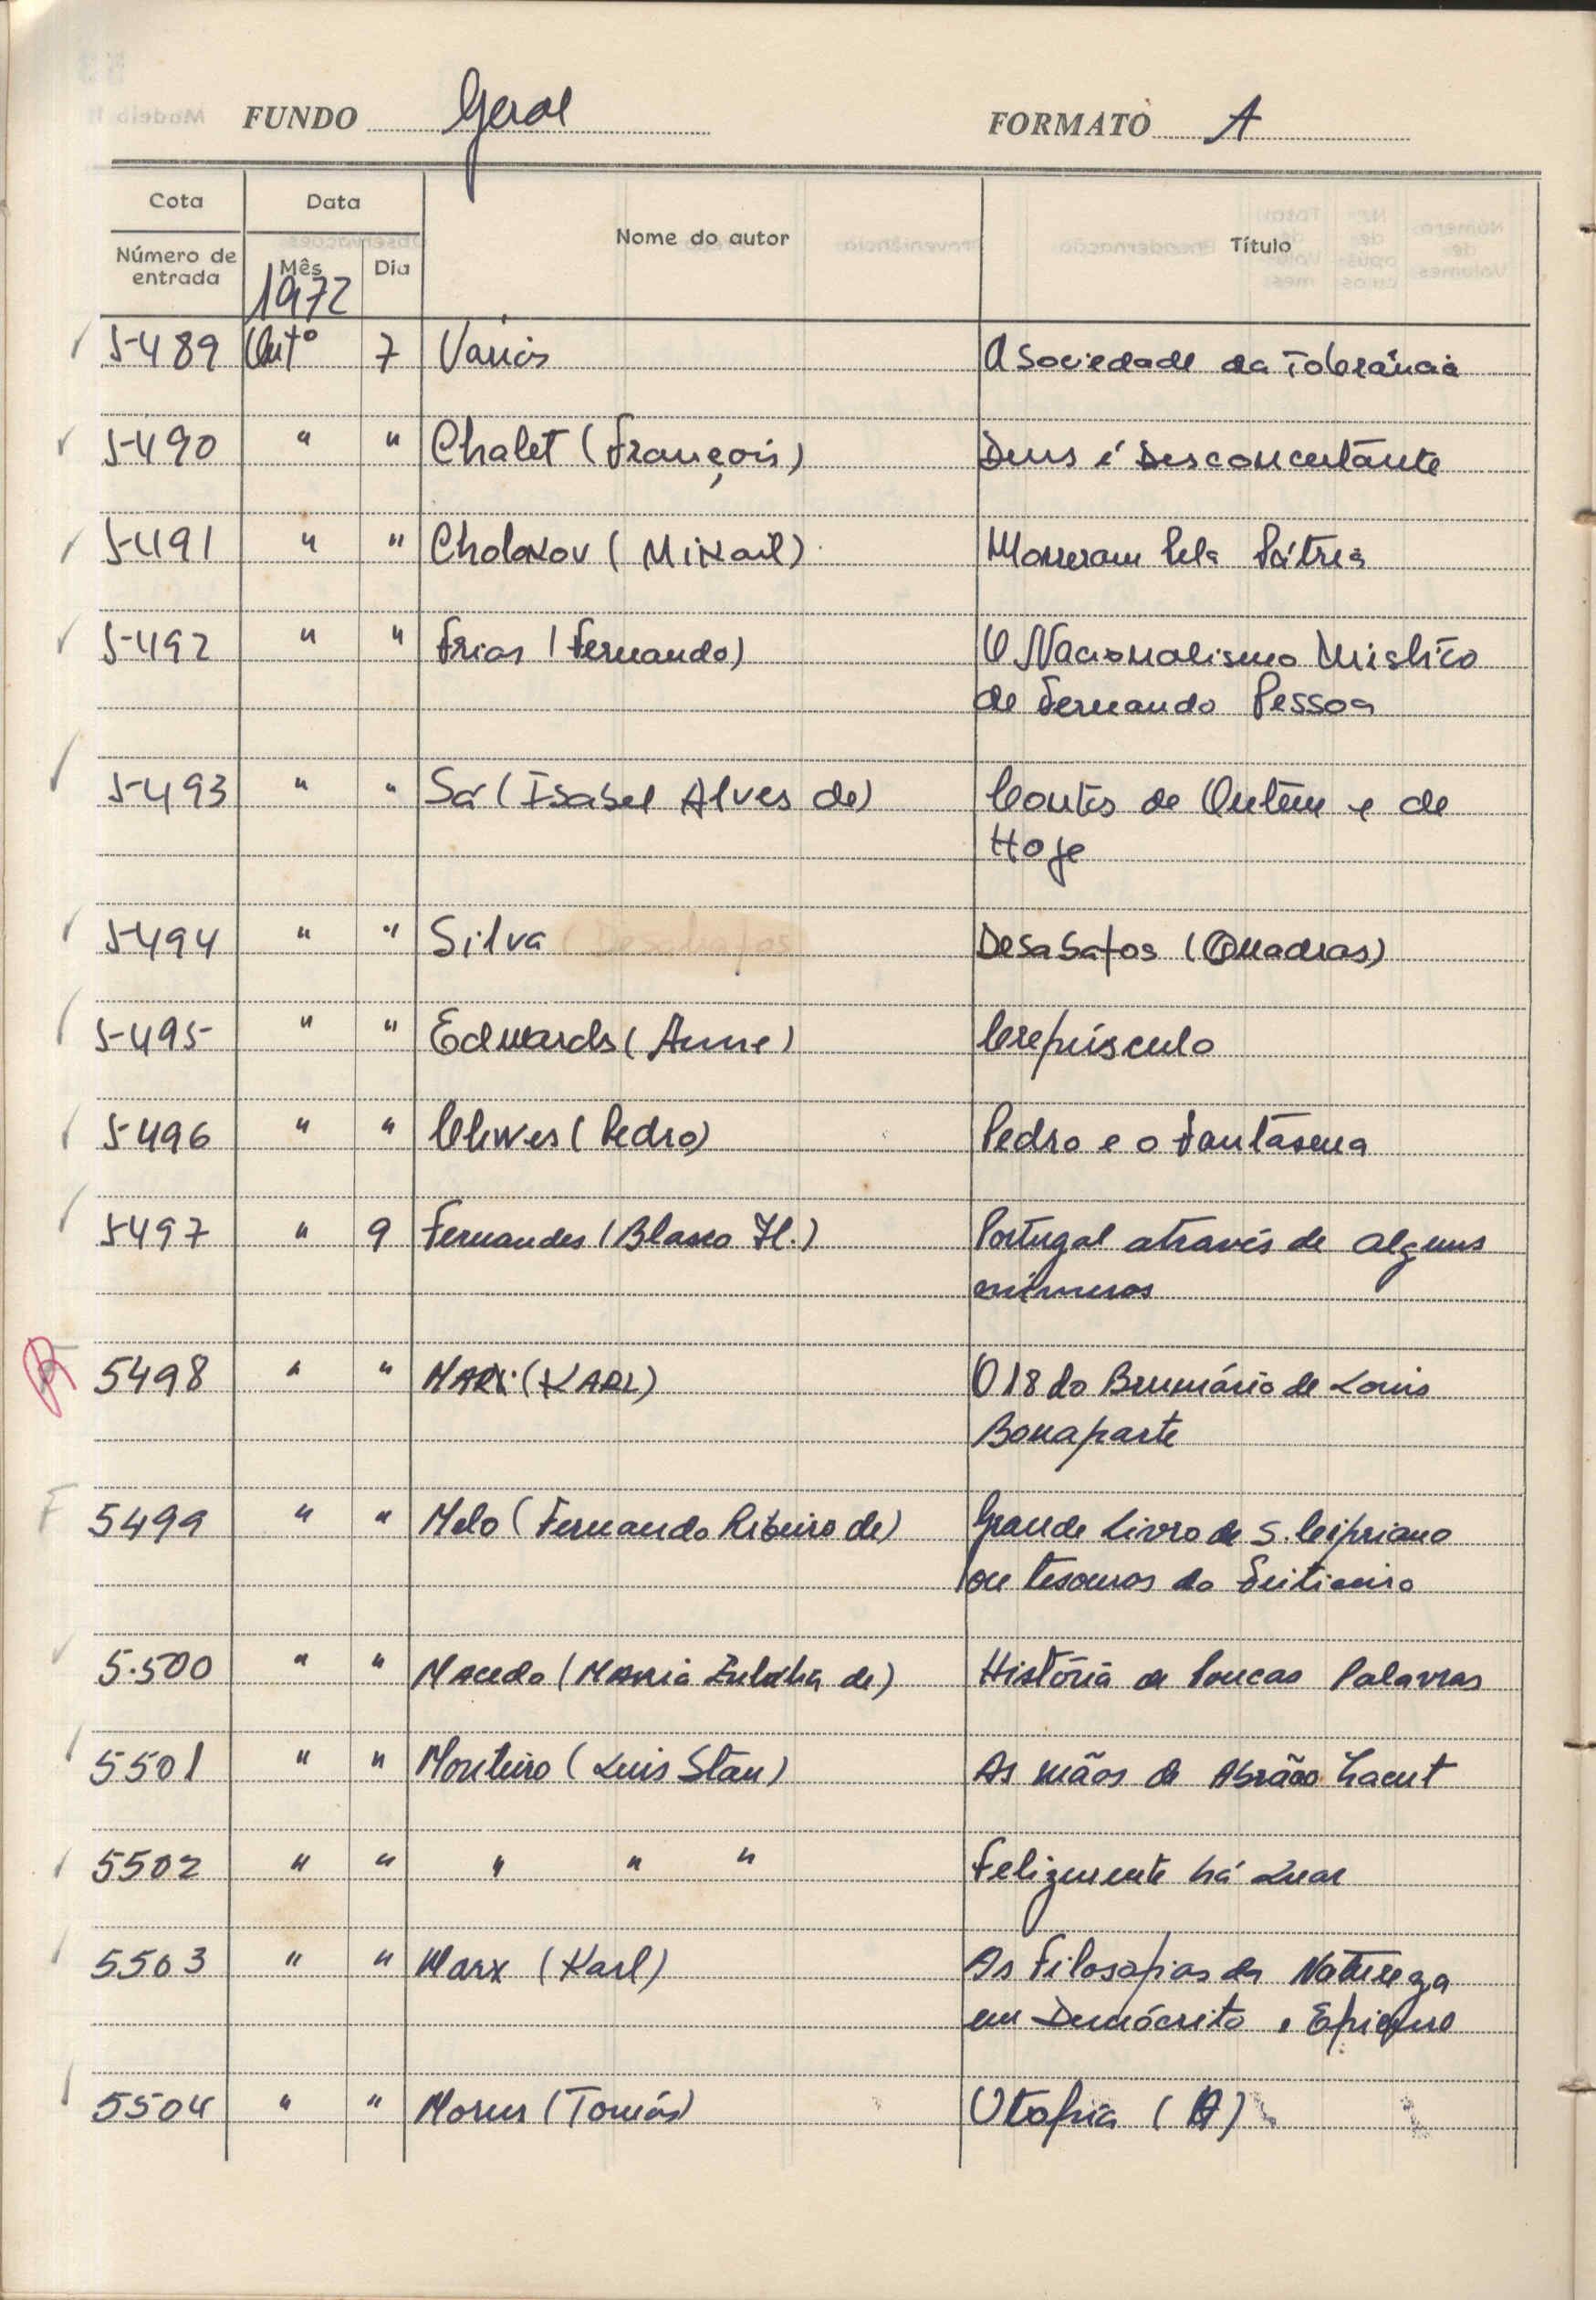 FUNDO Geral FORMATO A
Cota Data Nome do autor Título
Número de entrada Mês Dia
1972
5489 Outº 7 Varios A Sociedade da Tolerância
5490 " " Chalet (François) Deus é Desconcertante
5491 " " Cholokov (Mikail) Morreram Pela Pátria
5492 " " Frias (Fernando) O Nacionalismo Mistico
de Fernando Pessoa
5493 " " Sá (Isabel Alves de) Contos de Ontem e de
Hoje
5494 " " Silva Desabafos (Quadras)
5495 " " Edwards (Anne) Crepúsculo
5496 " " (Pedro) Pedro e o Fantasma
5497 " 9 Fernandes (Blasco H.) Portugal através de alguns
números
5498 " " MARX (KARL) O 18 do Brumário de Louis
Bonaparte
F 5499 " " Melo (Fernando Ribeiro de) Grande Livro de S. Cipriano
ou tesouros do Feiticeiro
5.500 " " Macedo (Maria de) História de Poucas Palavras
5501 " " Monteiro (Luis Stau) As mãos de Abraão Zacut
5502 " " " " " Felizmente há Luar
5503 " " Marx (Karl) As Filosofias da Natureza
em Demócrito e Epicuro
5504 " " Morus (Tomás) Utopia (A)